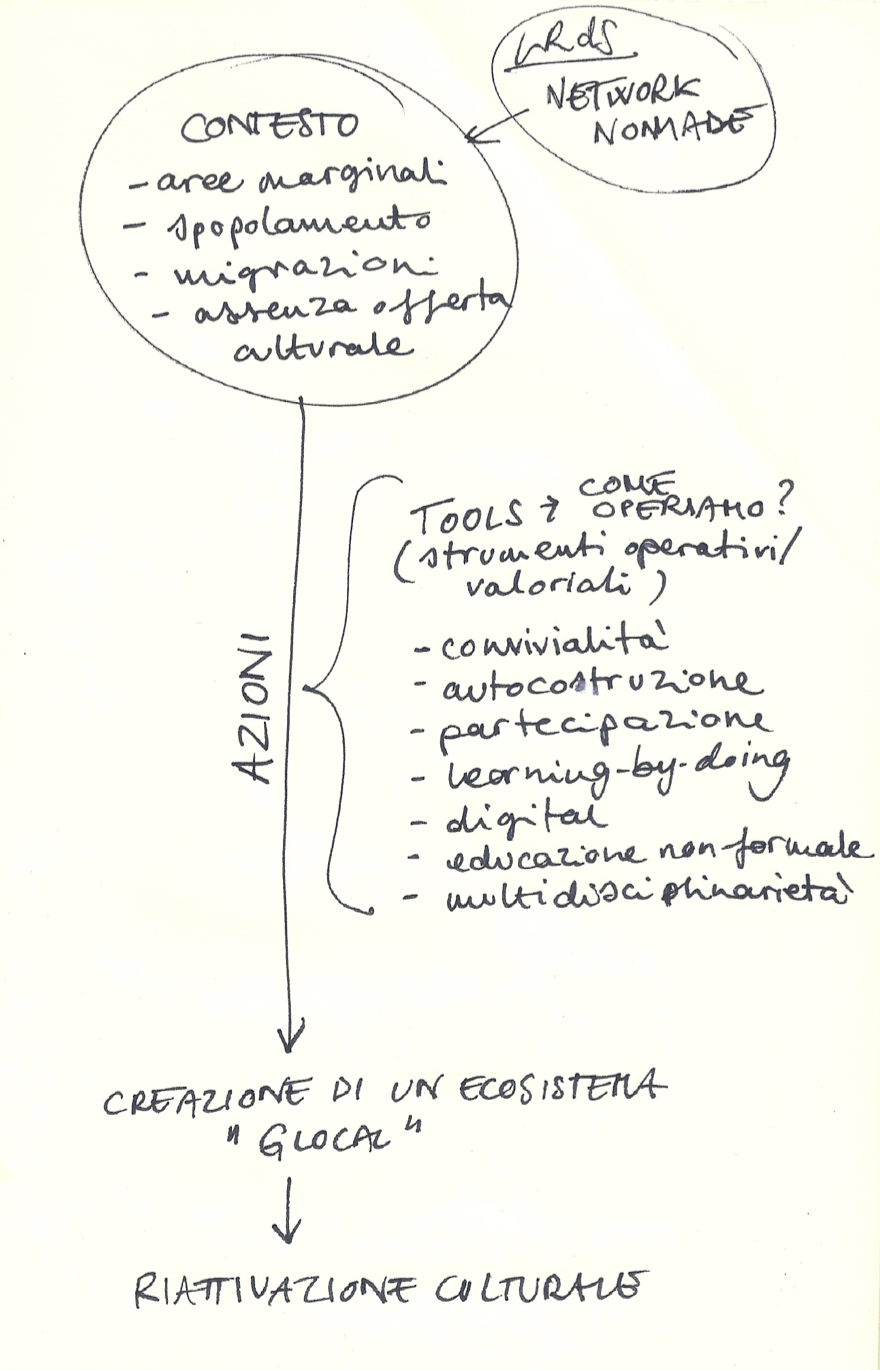 LRdS
NETWORK
NOMADE
CONTESTO
- aree marginali
- spopolamento
- migrazioni
- assenza offerta
culturale
AZIONI
TOOLS → COME
OPERIAMO?
(strumenti operativi/
valoriali)
- convivialità
- autocostruzione
- partecipazione
- learning-by-doing
- digital
- educazione non formale
- multidisciplinarietà
CREAZIONE DI UN ECOSISTEMA
"GLOCAL"
RIATTIVAZIONE CULTURALE